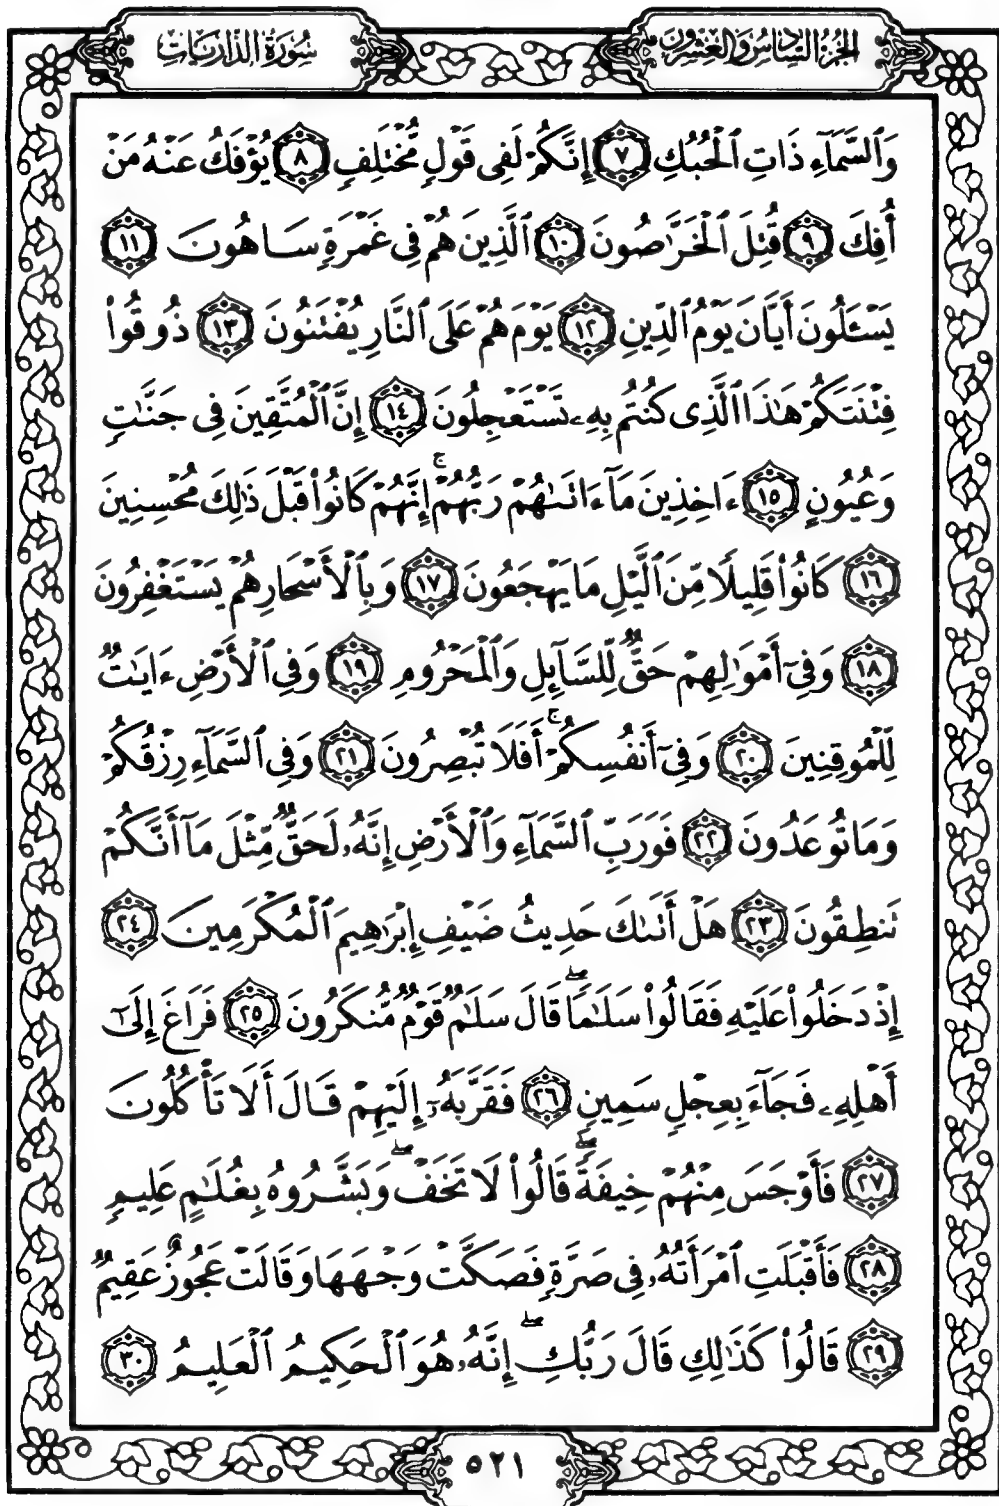 سُورَةُ الذَّارِيَاتِ الجُزْءُ السَّادِسُ وَالعِشْرُونَ
وَٱلسَّمَآءِ ذَاتِ ٱلْحُبُكِ ٧ إِنَّكُمْ لَفِى قَوْلٍ مُّخْتَلِفٍ ٨ يُؤْفَكُ عَنْهُ مَنْ
أُفِكَ ٩ قُتِلَ ٱلْخَرَّٰصُونَ ١٠ ٱلَّذِينَ هُمْ فِى غَمْرَةٍ سَاهُونَ ١١
يَسْـَٔلُونَ أَيَّانَ يَوْمُ ٱلدِّينِ ١٢ يَوْمَ هُمْ عَلَى ٱلنَّارِ يُفْتَنُونَ ١٣ ذُوقُوا۟
فِتْنَتَكُمْ هَٰذَا ٱلَّذِى كُنتُم بِهِۦ تَسْتَعْجِلُونَ ١٤ إِنَّ ٱلْمُتَّقِينَ فِى جَنَّٰتٍ
وَعُيُونٍ ١٥ ءَاخِذِينَ مَآ ءَاتَىٰهُمْ رَبُّهُمْ ۚ إِنَّهُمْ كَانُوا۟ قَبْلَ ذَٰلِكَ مُحْسِنِينَ
١٦ كَانُوا۟ قَلِيلًا مِّنَ ٱلَّيْلِ مَا يَهْجَعُونَ ١٧ وَبِٱلْأَسْحَارِ هُمْ يَسْتَغْفِرُونَ
١٨ وَفِىٓ أَمْوَٰلِهِمْ حَقٌّ لِّلسَّآئِلِ وَٱلْمَحْرُومِ ١٩ وَفِى ٱلْأَرْضِ ءَايَٰتٌ
لِّلْمُوقِنِينَ ٢٠ وَفِىٓ أَنفُسِكُمْ ۚ أَفَلَا تُبْصِرُونَ ٢١ وَفِى ٱلسَّمَآءِ رِزْقُكُمْ
وَمَا تُوعَدُونَ ٢٢ فَوَرَبِّ ٱلسَّمَآءِ وَٱلْأَرْضِ إِنَّهُۥ لَحَقٌّ مِّثْلَ مَآ أَنَّكُمْ
تَنطِقُونَ ٢٣ هَلْ أَتَىٰكَ حَدِيثُ ضَيْفِ إِبْرَٰهِيمَ ٱلْمُكْرَمِينَ ٢٤
إِذْ دَخَلُوا۟ عَلَيْهِ فَقَالُوا۟ سَلَٰمًا ۖ قَالَ سَلَٰمٌ قَوْمٌ مُّنكَرُونَ ٢٥ فَرَاغَ إِلَىٰٓ
أَهْلِهِۦ فَجَآءَ بِعِجْلٍ سَمِينٍ ٢٦ فَقَرَّبَهُۥٓ إِلَيْهِمْ قَالَ أَلَا تَأْكُلُونَ
٢٧ فَأَوْجَسَ مِنْهُمْ خِيفَةً ۖ قَالُوا۟ لَا تَخَفْ ۖ وَبَشَّرُوهُ بِغُلَٰمٍ عَلِيمٍ
٢٨ فَأَقْبَلَتِ ٱمْرَأَتُهُۥ فِى صَرَّةٍ فَصَكَّتْ وَجْهَهَا وَقَالَتْ عَجُوزٌ عَقِيمٌ
٢٩ قَالُوا۟ كَذَٰلِكِ قَالَ رَبُّكِ ۖ إِنَّهُۥ هُوَ ٱلْحَكِيمُ ٱلْعَلِيمُ ٣٠
٥٢١